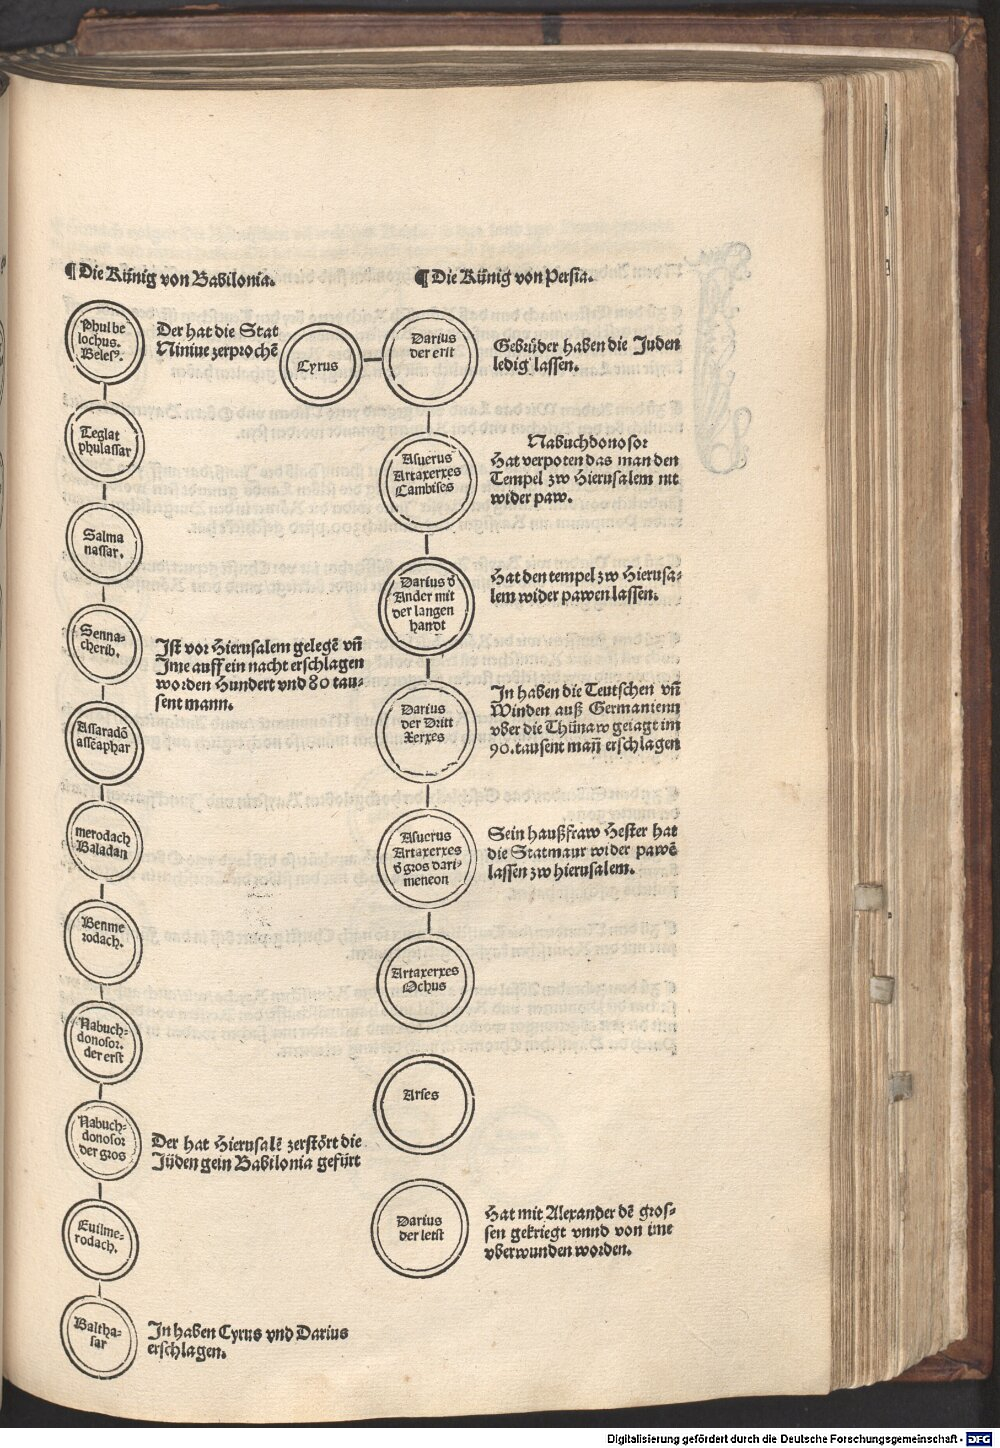 ¶ Die Künig von Babilonia.
Phul be
lochus.
Beleſꝰ.
Der hat die Stat
Niniue zerprochē
Teglat
phulaſſar
Salma
naſſar.
Senna-
cherib.
Iſt vor Hieruſalem gelegē vñ
Jme auff ein nacht erſchlagen
worden Hundert vnd 80 tau-
ſent mann.
Aſſaradō
aſſēaphar
merodach
Baladan
Benme
rodach.
Nabuch-
donoſor.
der erſt
Nabuch-
donoſor
der gros
Der hat Hieruſalē zerſtört die
Jüden gein Babilonia gefürt
Euilme-
rodach.
Baltha-
ſar
Jn haben Cyrus vnd Darius
erſchlagen.
¶ Die Künig von Perſia.
Cyrus
Darius
der erſt
Gebrüder haben die Juden
ledig laſſen.
Aſuerus
Artaxerxes
Cambiſes
Nabuchdonoſor
Hat verpoten das man den
Tempel zw Hieruſalem nit
wider paw.
Darius ď
Ander mit
der langen
handt
Hat den tempel zw Hieruſa-
lem wider pawen laſſen.
Darius
der Dritt
Xerxes
Jn haben die Teutſchen vñ
Winden auß Germanienn
vber die Thünaw geiagt im
90. tauſent mañ erſchlagen
Aſuerus
Artaxerxes
ď gros dari-
meneon
Sein haußfraw Heſter hat
die Statmaur wider pawē
laſſen zw hieruſalem.
Artaxerxes
Ochus
Arſes
Darius
der letſt
Hat mit Alexander dē groſ-
ſen gekriegt vnnd von ime
vberwunden worden.
Digitalisierung gefördert durch die Deutsche Forschungsgemeinschaft - DFG